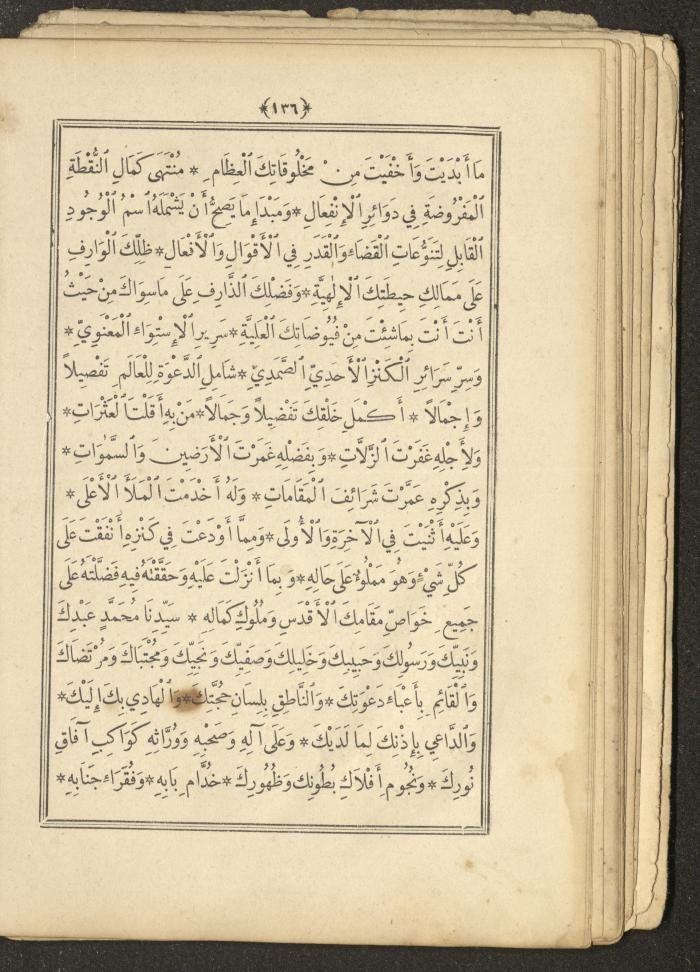 ﴿١٣٦﴾
مَا أَبْدَيْتَ وَأَخْفَيْتَ مِنْ مَخْلُوقَاتِكَ ٱلْعِظَامِ * مُنْتَهَى كَمَالِ ٱلنُّقْطَةِ
ٱلْمَفْرُوضَةِ فِي دَوَائِرِ ٱلْإِنْفِعَالِ * وَمَبْدَإِ مَا يَصِحُّ أَنْ يَشْمَلَهُ ٱسْمُ ٱلْوُجُودِ
ٱلْقَابِلِ لِتَنَوُّعَاتِ ٱلْقَضَاءِ وَٱلْقَدَرِ فِي ٱلْأَقْوَالِ وَٱلْأَفْعَالِ * ظِلِّكَ ٱلْوَارِفِ
عَلَى مَمَالِكِ حِيطَتِكَ ٱلْإِلٰهِيَّةِ * وَفَضْلِكَ ٱلذَّارِفِ عَلَى مَا سِوَاكَ مِنْ حَيْثُ
أَنْتَ أَنْتَ بِمَا شِئْتَ مِنْ فُيُوضَاتِكَ ٱلْعَلِيَّةِ * سَرِيرِ ٱلْإِسْتِوَاءِ ٱلْمَعْنَوِيِّ *
وَسِرِّ سَرَائِرِ ٱلْكَنْزِ ٱلْأَحَدِيِّ ٱلصَّمَدِيِّ * شَامِلِ ٱلدَّعْوَةِ لِلْعَالَمِ تَفْصِيلاً
وَإِجْمَالاً * أَكْمَلِ خَلْقِكَ تَفْضِيلاً وَجَمَالاً * مَنْ بِهِ أَقَلْتَ ٱلْعَثَرَاتِ *
وَلِأَجْلِهِ غَفَرْتَ ٱلزَّلَّاتِ * وَبِفَضْلِهِ غَمَرْتَ ٱلْأَرَضِينَ وَٱلسَّمٰوَاتِ *
وَبِذِكْرِهِ عَمَّرْتَ شَرَائِفَ ٱلْمَقَامَاتِ * وَلَهُ أَخْدَمْتَ ٱلْمَلَأَ ٱلْأَعْلَى *
وَعَلَيْهِ أَثْنَيْتَ فِي ٱلْآخِرَةِ وَٱلْأُولَى * وَمِمَّا أَوْدَعْتَ فِي كَنْزِهِ أَنْفَقْتَ عَلَى
كُلِّ شَيْءٍ وَهُوَ مَمْلُوءٌ عَلَى حَالِهِ * وَبِمَا أَنْزَلْتَ عَلَيْهِ وَحَقَّقْتَهُ فِيهِ فَضَّلْتَهُ عَلَى
جَمِيعِ خَوَاصِّ مَقَامِكَ ٱلْأَقْدَسِ وَمُلُوكِ كَمَالِهِ * سَيِّدِنَا مُحَمَّدٍ عَبْدِكَ
وَنَبِيِّكَ وَرَسُولِكَ وَحَبِيبِكَ وَخَلِيلِكَ وَصَفِيِّكَ وَنَجِيِّكَ وَمُجْتَبَاكَ وَمُرْتَضَاكَ
وَٱلْقَائِمِ بِأَعْبَاءِ دَعْوَتِكَ * وَٱلنَّاطِقِ بِلِسَانِ حُجَّتِكَ * وَٱلْهَادِي بِكَ إِلَيْكَ *
وَٱلدَّاعِي بِإِذْنِكَ لِمَا لَدَيْكَ * وَعَلَى آلِهِ وَصَحْبِهِ وَوُرَّاثِهِ كَوَاكِبِ آفَاقِ
نُورِكَ * وَنُجُومِ أَفْلَاكِ بُطُونِكَ وَظُهُورِكَ * خُدَّامِ بَابِهِ * وَفُقَرَاءِ جَنَابِهِ *